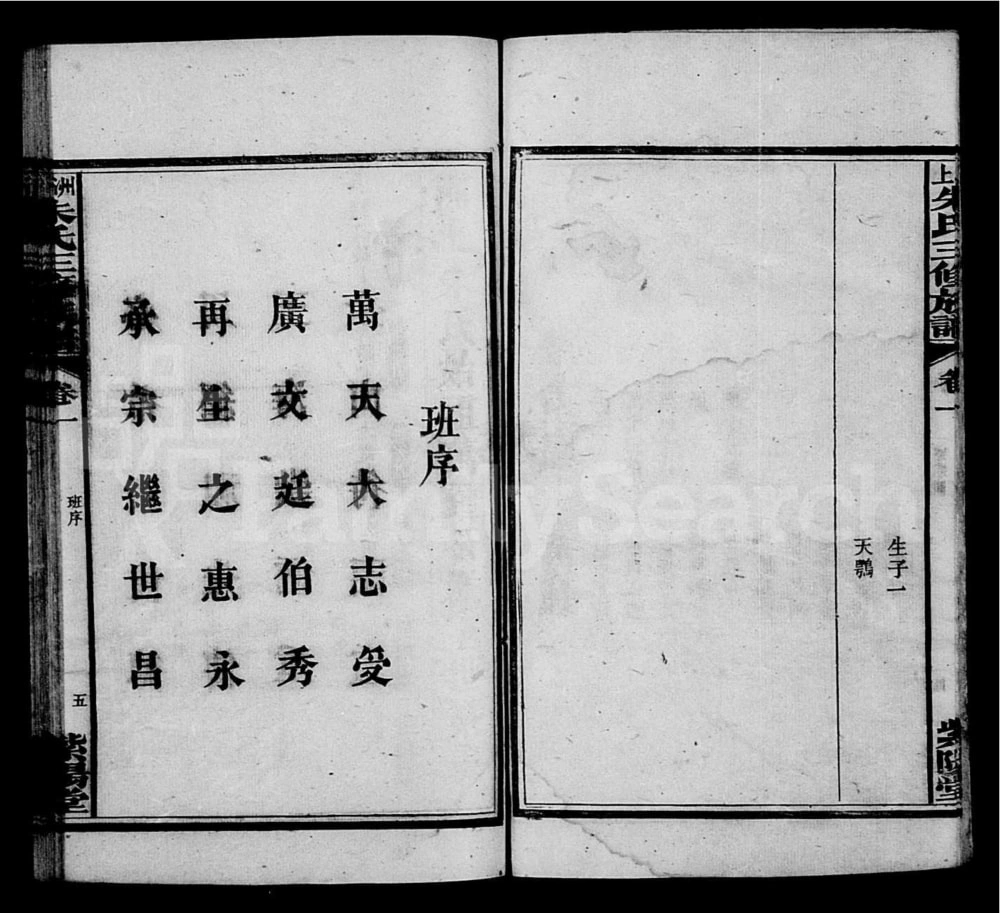 上朱氏三修族譜
卷一
生子一
天鶚
紫陽堂
班序
萬天大志受
廣文廷伯秀
再生之惠永
承宗繼世昌
洲朱氏三
卷一
班序
五
紫陽堂